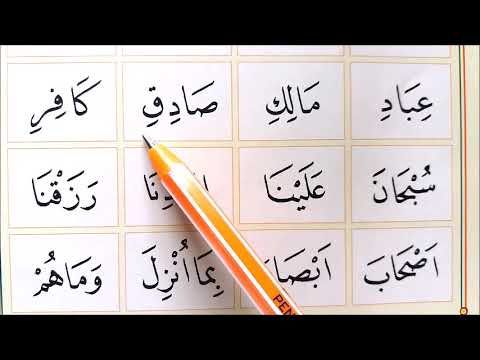 عِبَادِ مَالِكِ صَادِقِ كَافِرِ
سُبْحَانَ عَلَيْنَا رَزَقْنَا
اَصْحَابَ بِمَا اُنْزِلَ وَمَاهُمْ